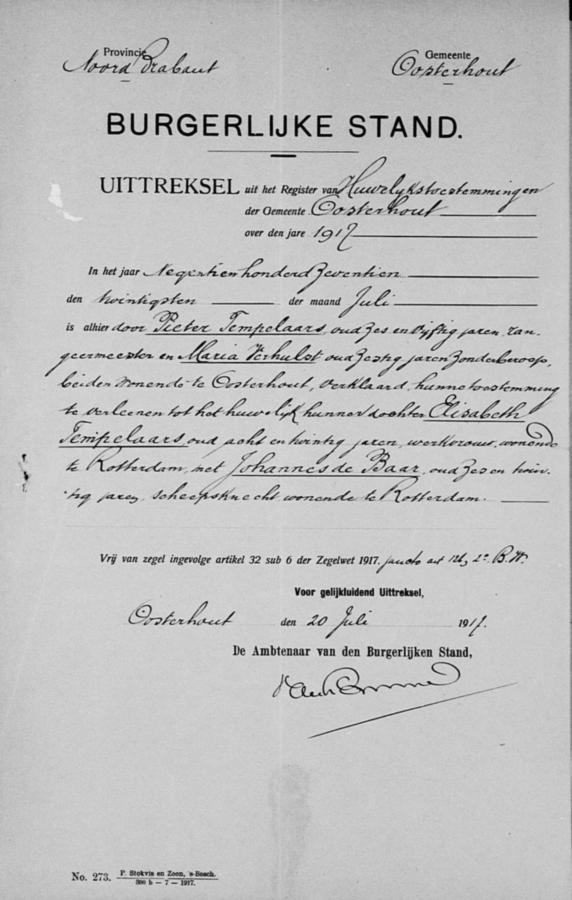 Provincie Gemeente
Noord Brabant Oosterhout
BURGERLIJKE STAND.
UITTREKSEL uit het Register van Huwelijkstoestemmingen
der Gemeente Oosterhout
over den jare 1917
In het jaar Negentienhonderd Zeventien
den twintigsten der maand Juli
is alhier door Pieter Tempelaars, oud zes en vijftig jaren, ran-
geermeester en Maria Verhulst oud zestig jaren zonder beroep,
beiden wonende te Oosterhout, verklaard, hunne toestemming
te verleenen tot het huwelijk hunner dochter Elisabeth
Tempelaars, oud acht en twintig jaren, werkvrouw, wonende
te Rotterdam, met Johannes de Baar, oud zes en twin-
tig jaren, scheepsknecht wonende te Rotterdam.
Vrij van zegel ingevolge artikel 32 sub 6 der Zegelwet 1917. juncto art 126, 2º B.W.
Voor gelijkluidend Uittreksel,
Oosterhout den 20 Juli 1917.
De Ambtenaar van den Burgerlijken Stand,
No. 273. P. Stokvis en Zoon, 's-Bosch.
300 b — 7 — 1917.